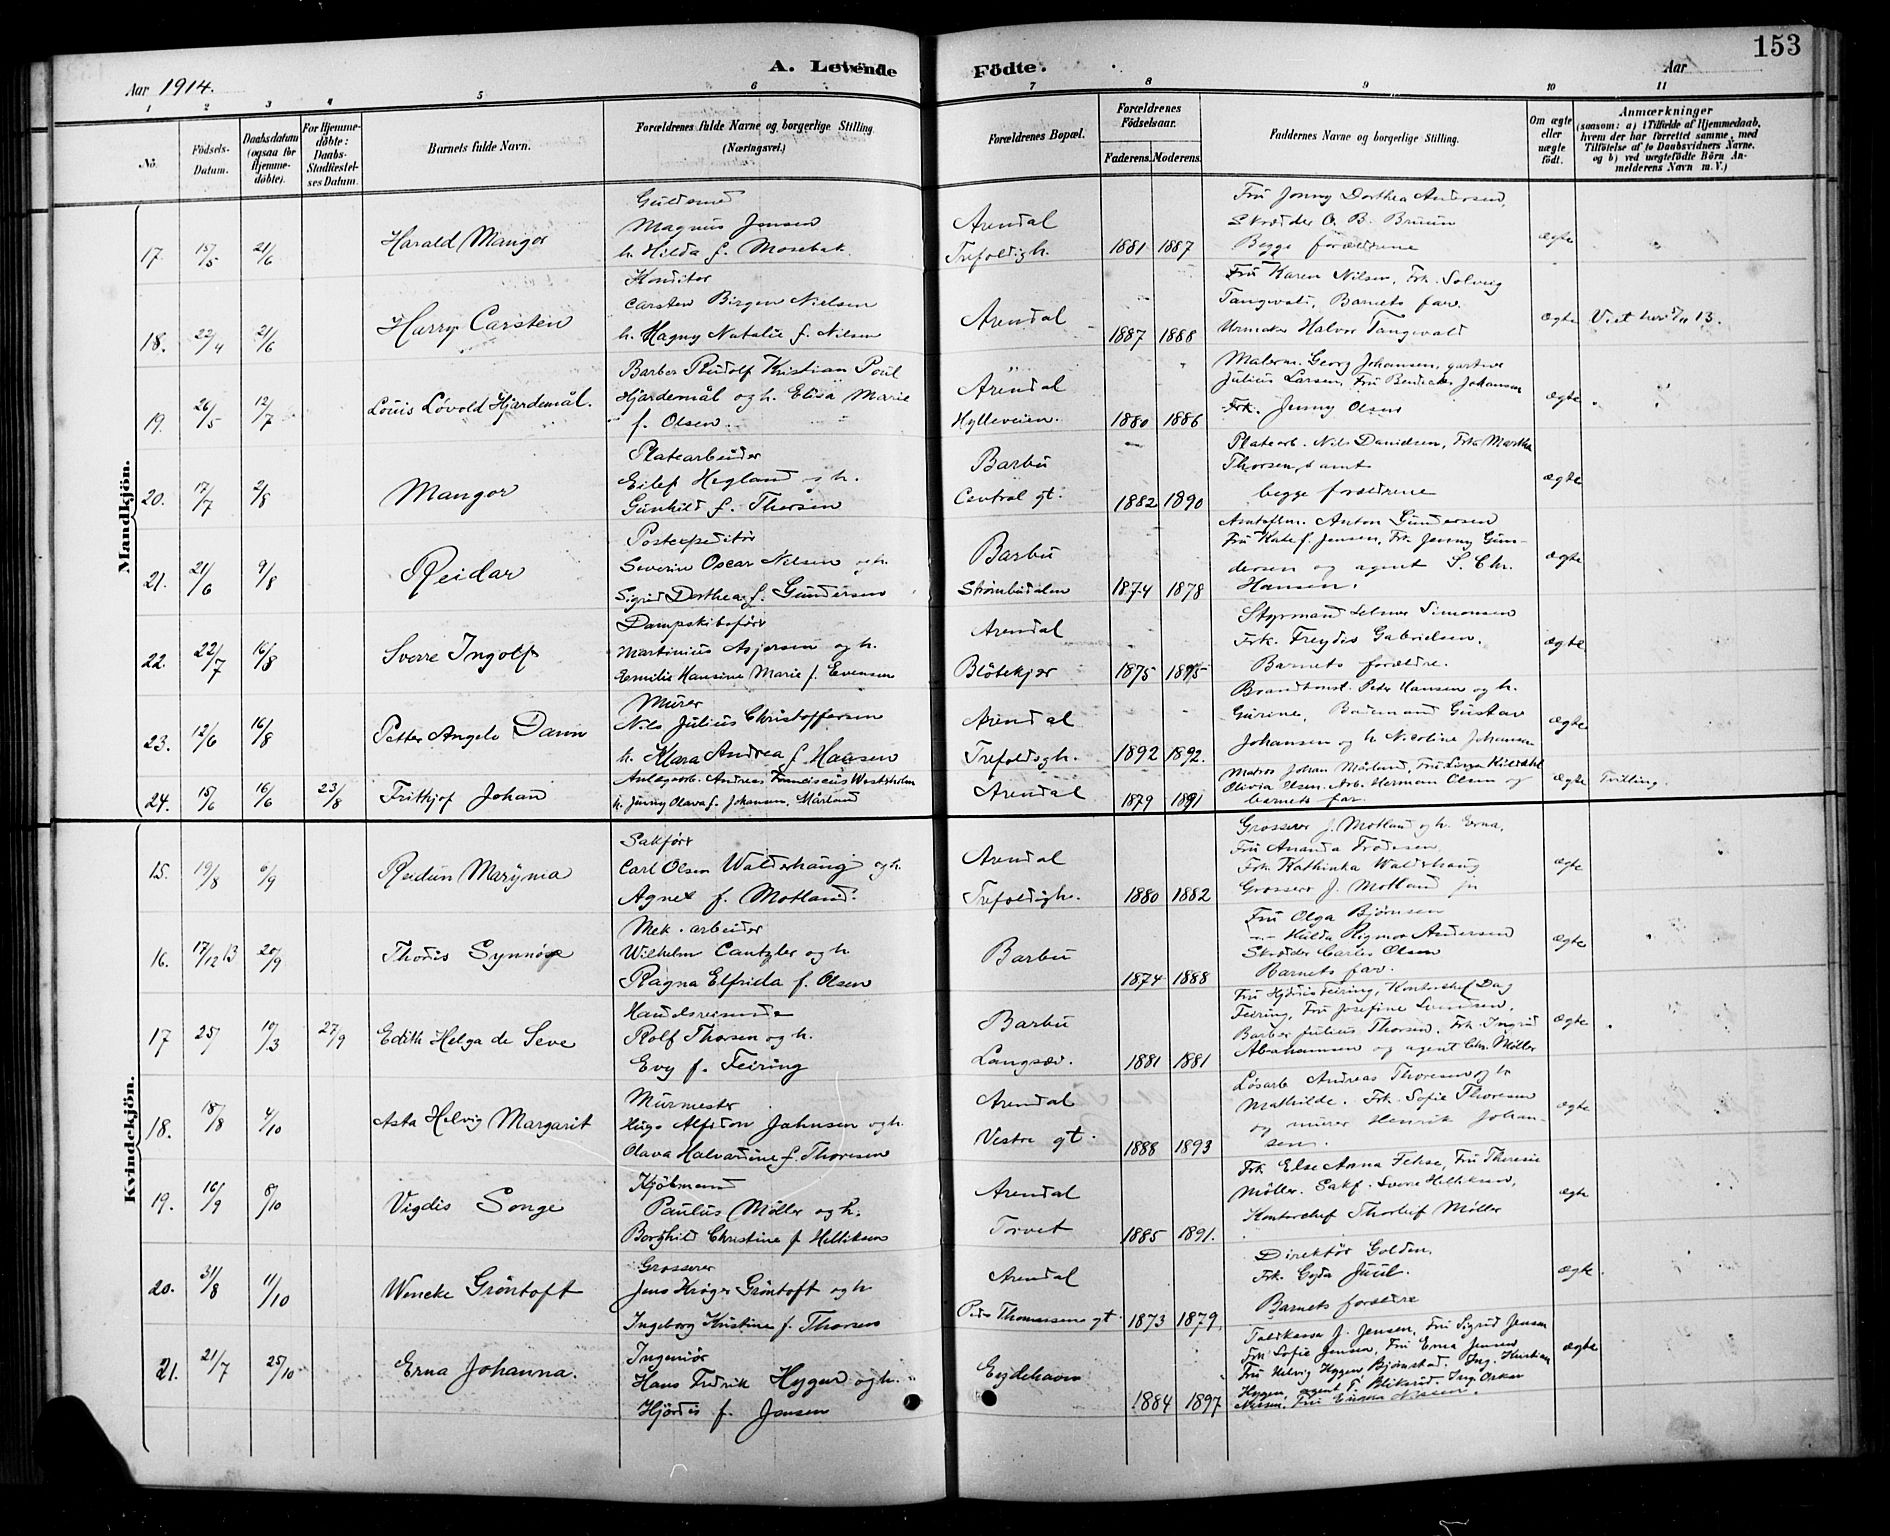 153
Aar 1914.
A. Levende Födte.
Aar
1 2 3 4 5 6 7 8 9 10 11
No.
Födsels-Datum.
Daabsdatum (ogsaa for Hjemme-döbte).
For Hjemme-döbte: Daabs-Stadfæstel-ses Datum.
Barnets fulde Navn.
Forældrenes fulde Navne og borgerlige Stilling (Næringsvei.)
Forældrenes Bopæl.
Forældrenes Födselsaar.
Faderens. Moderens.
Faddernes Navne og borgerlige Stilling.
Om ægte eller uægte födt.
Anmærkninger
(saasom: a) i Tilfælde af Hjemmedaab, hvem der har forrettet samme, med Tilföielse af to Daabsvidners Navne, og b) ved uægtefödte Börn An-melderens Navn m. V.)
Mandkjön.
17. 15/5 21/6 Harald Mangor
Guldsmed
Magnus Jensen
h. Hilda f. Mosebak
Arendal
Trefoldigh. 1881 1887
Fru Jenny Dorthea Andersen,
Skrædder O. B. Bruun
Begge forældrene
ægte
18. 22/4 21/6 Harry Carsten
Konditor
Carsten Birger Nielsen
h. Hagny Natalie f. Nilsen
Arendal 1887 1888
Fru Karen Nilsen, Frk. Solveig
Tangvald, Barnets far.
Urmaker Halvor Tangvald
ægte Viet her 13.
19. 26/5 12/7 Louis Lövold Hjardemål.
Barber Rudolf Kristian Poul
Hjardemål og h. Elisa Marie
f. Olsen
Arendal
Hylleveien. 1880 1886
Malerm. Georg Johansen, gartner
Julius Larsen, Fru Johansen
Frk. Jenny Olsen
ægte
20. 17/7 2/8 Mangor
Platearbeider
Eilef Hegland og h.
Gunhild f. Thorsen
Barbu
Central gt. 1882 1890
Platearb. Nils Danielsen, Frk Martha
Thorsen, samt
begge forældrene
ægte
21. 21/6 9/8 Reidar
Postexpeditör
Severin Oscar Nilsen og h.
Sigrid Dorthea f. Gundersen
Barbu
Strömbudalen 1874 1878
Amtsflm. Anton Gundersen
Fru Kate f. Jensen, Frk. Jenny Gun-
dersen og agent S. Chr.
Hansen.
ægte
22. 22/7 16/8 Sverre Ingolf
Dampskibsförer
Martinius Asjersen og h.
Emilie Hansine Marie f. Evensen
Arendal
Blötekjær 1875
Styrmand Simonsen
Frk. Freydis Gabrielsen.
Barnets forældre.
ægte
23. 12/6 16/8 Petter Angelo Dann
Murer
Nils Julius Christoffersen
h. Klara Andrea f. Hansen
Arendal
Trefoldigh. 1892 1892.
Brandkonst. Peter Hansen og h.
Gurine, Bademand Gustav
Johansen og h Nicoline Johansen
ægte
24. 15/6 16/6 23/8 Frithjof Johan
Anlægsarb. Andreas Franciscus
h. Jenny Olava f. Johansen, Mårland
Arendal 1879 1891
Matros Johan Mårland, Fru
Olivia Olsen. Arb. Herman Olsen og
barnets far.
ægte Tvilling.
Kvindekjön.
15. 19/8 6/9 Reidun Marÿnia
Sakförer
Carl Olsen Walderhaug og h.
Agnes f. Motland.
Arendal
Trefoldigh. 1880 1882
Grosserer J. Motland og h. Erna,
Fru Ananda Frodesen,
Frk. Kathinka Walderhaug
Grosserer J. Motland jr
ægte
16. 17/12 13 20/9 Thordis Synnöve
Mek. arbeider
Wilhelm Cantzler og h.
Ragna Elfrida f. Olsen
Barbu 1874 1888
Fru Olga Björnsen
— Hulda Rigmor Andersen
Skrædder Carlos Olsen
Barnets far.
ægte
17 25/ 10/3 27/9 Edith Helga de Seve
Handelsreisende
Rolf Thorsen og h.
Evy f. Feiring
Barbu
Langsæv. 1881 1881
Fru Hjördis Feiring, Kontorchef Dag
Feiring, Fru Josefine Svendsen,
Barber Julius Thorsen. Frk. Ingrid
Abrahamsen og agent Chr. Möller
ægte
18. 18/8 4/10 Asta Helvig Margarit
Murmester
Hugo Alfidon Jahnsen og h.
Olava Halvardine f. Thoresen
Arendal
Vestre gt. 1888 1893
Lösarb Andreas Thoresen og h
Mathilde. Frk. Sofie Thoresen
og murer Henrik Johan-
sen.
ægte
19. 16/9 8/10 Vigdis Songe
Kjöbmand
Paulus Möller og h.
Borghild Christine f. Helliksen
Arendal
Torvet 1885 1891.
Frk. Else Anna Fehse, Fru Theresie
Möller. Sakf. Sverre Helliksen,
Kontorchef Thorleif Möller
ægte
20. 31/8 11/10 Wencke Gröntoft
Grosserer
Jens Kröger Gröntoft og h
Ingeborg Kristine f. Thorsen
Arendal
Peder Thomassens gt. 1873 1879.
Direktör Golden,
Frk. Cyda Juul.
Barnets forældre
ægte.
21. 21/7 25/10 Erna Johanna.
Ingeniör
Hans Fredrik Hygen og h.
Hjördis f. Jensen
Eydehavn 1884 1897
Toldkasse J. Jensen, Fru Sigrid Jensen
Frk. Sofie Jensen, Fru Erna Jensen
Fru Helvig Hygen Björnstad. Ing. Kristian
Hygen, agent T. Bliksrud. Ing. Oskar
Nissen, Fru Nissen.
ægte